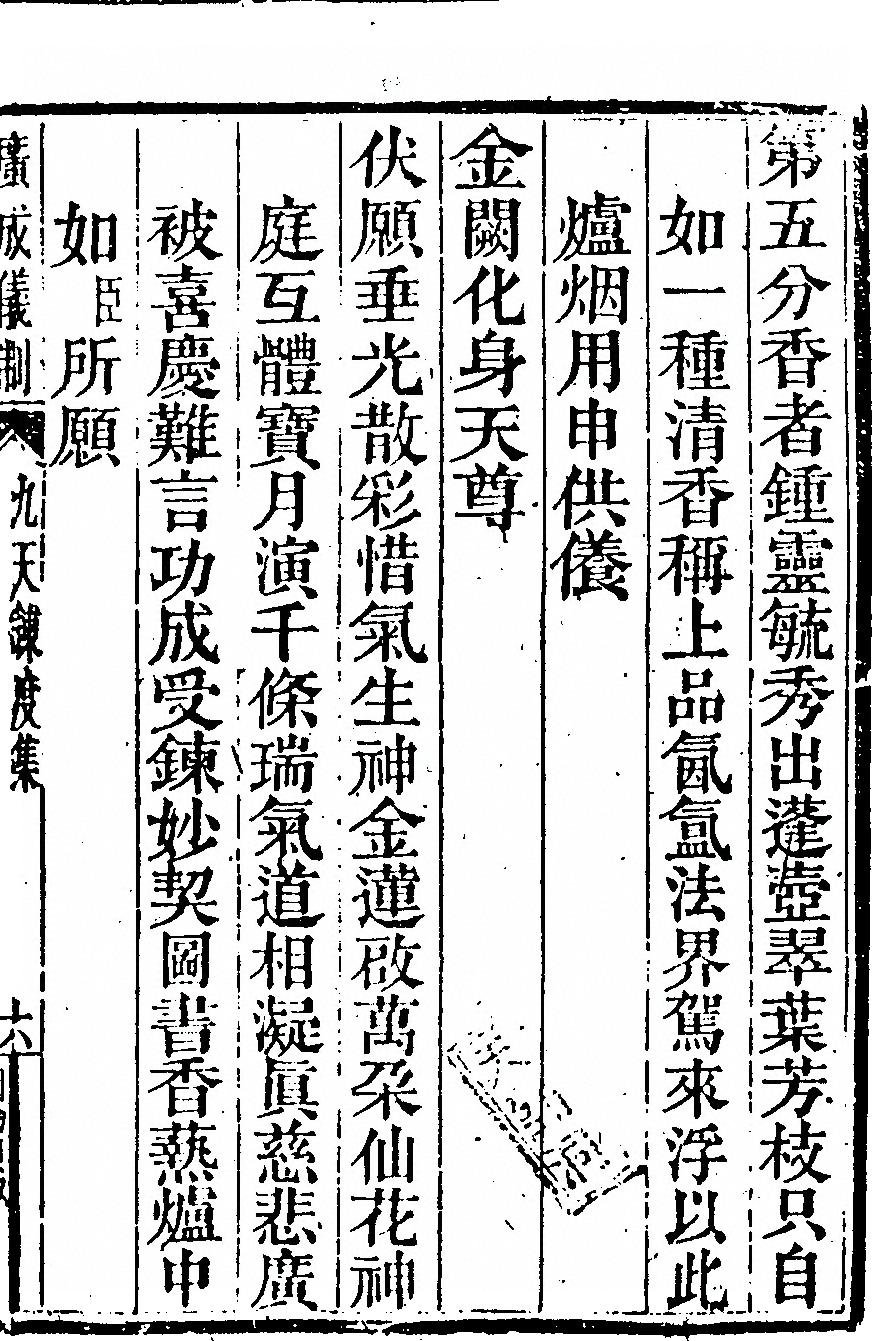 第五分香者鍾靈毓秀出蓬壺翠葉芳枝只自
如一種清香稱上品氤氳法界駕來浮以此
爐烟用申供養
金闕化身天尊
伏願垂光散彩惜氣生神金蓮啟萬朶仙花神
庭互體寶月演千條瑞氣道相凝眞慈悲廣
被喜慶難言功成受鍊妙契圖書香爇爐中
如臣所願
廣成儀制
九天鍊度集
十六